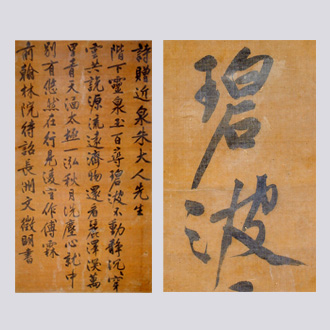 詩贈近泉朱大人先生
階下靈泉玉百尋碧波不動靜沉
雲共說源流遠濟物還看
里青天涵太極一泓秋月洗塵心就中
別有悠然在行見
前翰林院待詔長洲文徵明書
碧
波